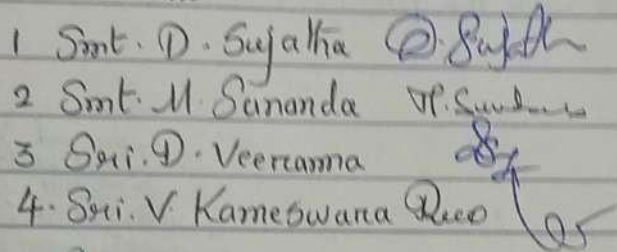 1 Smt. D. Sujatha D. Sujath
2 Smt. M. Sunanda M. Sunanda
3 Sri. D. Veeranna
4. Sri. V. Kameswara Rao